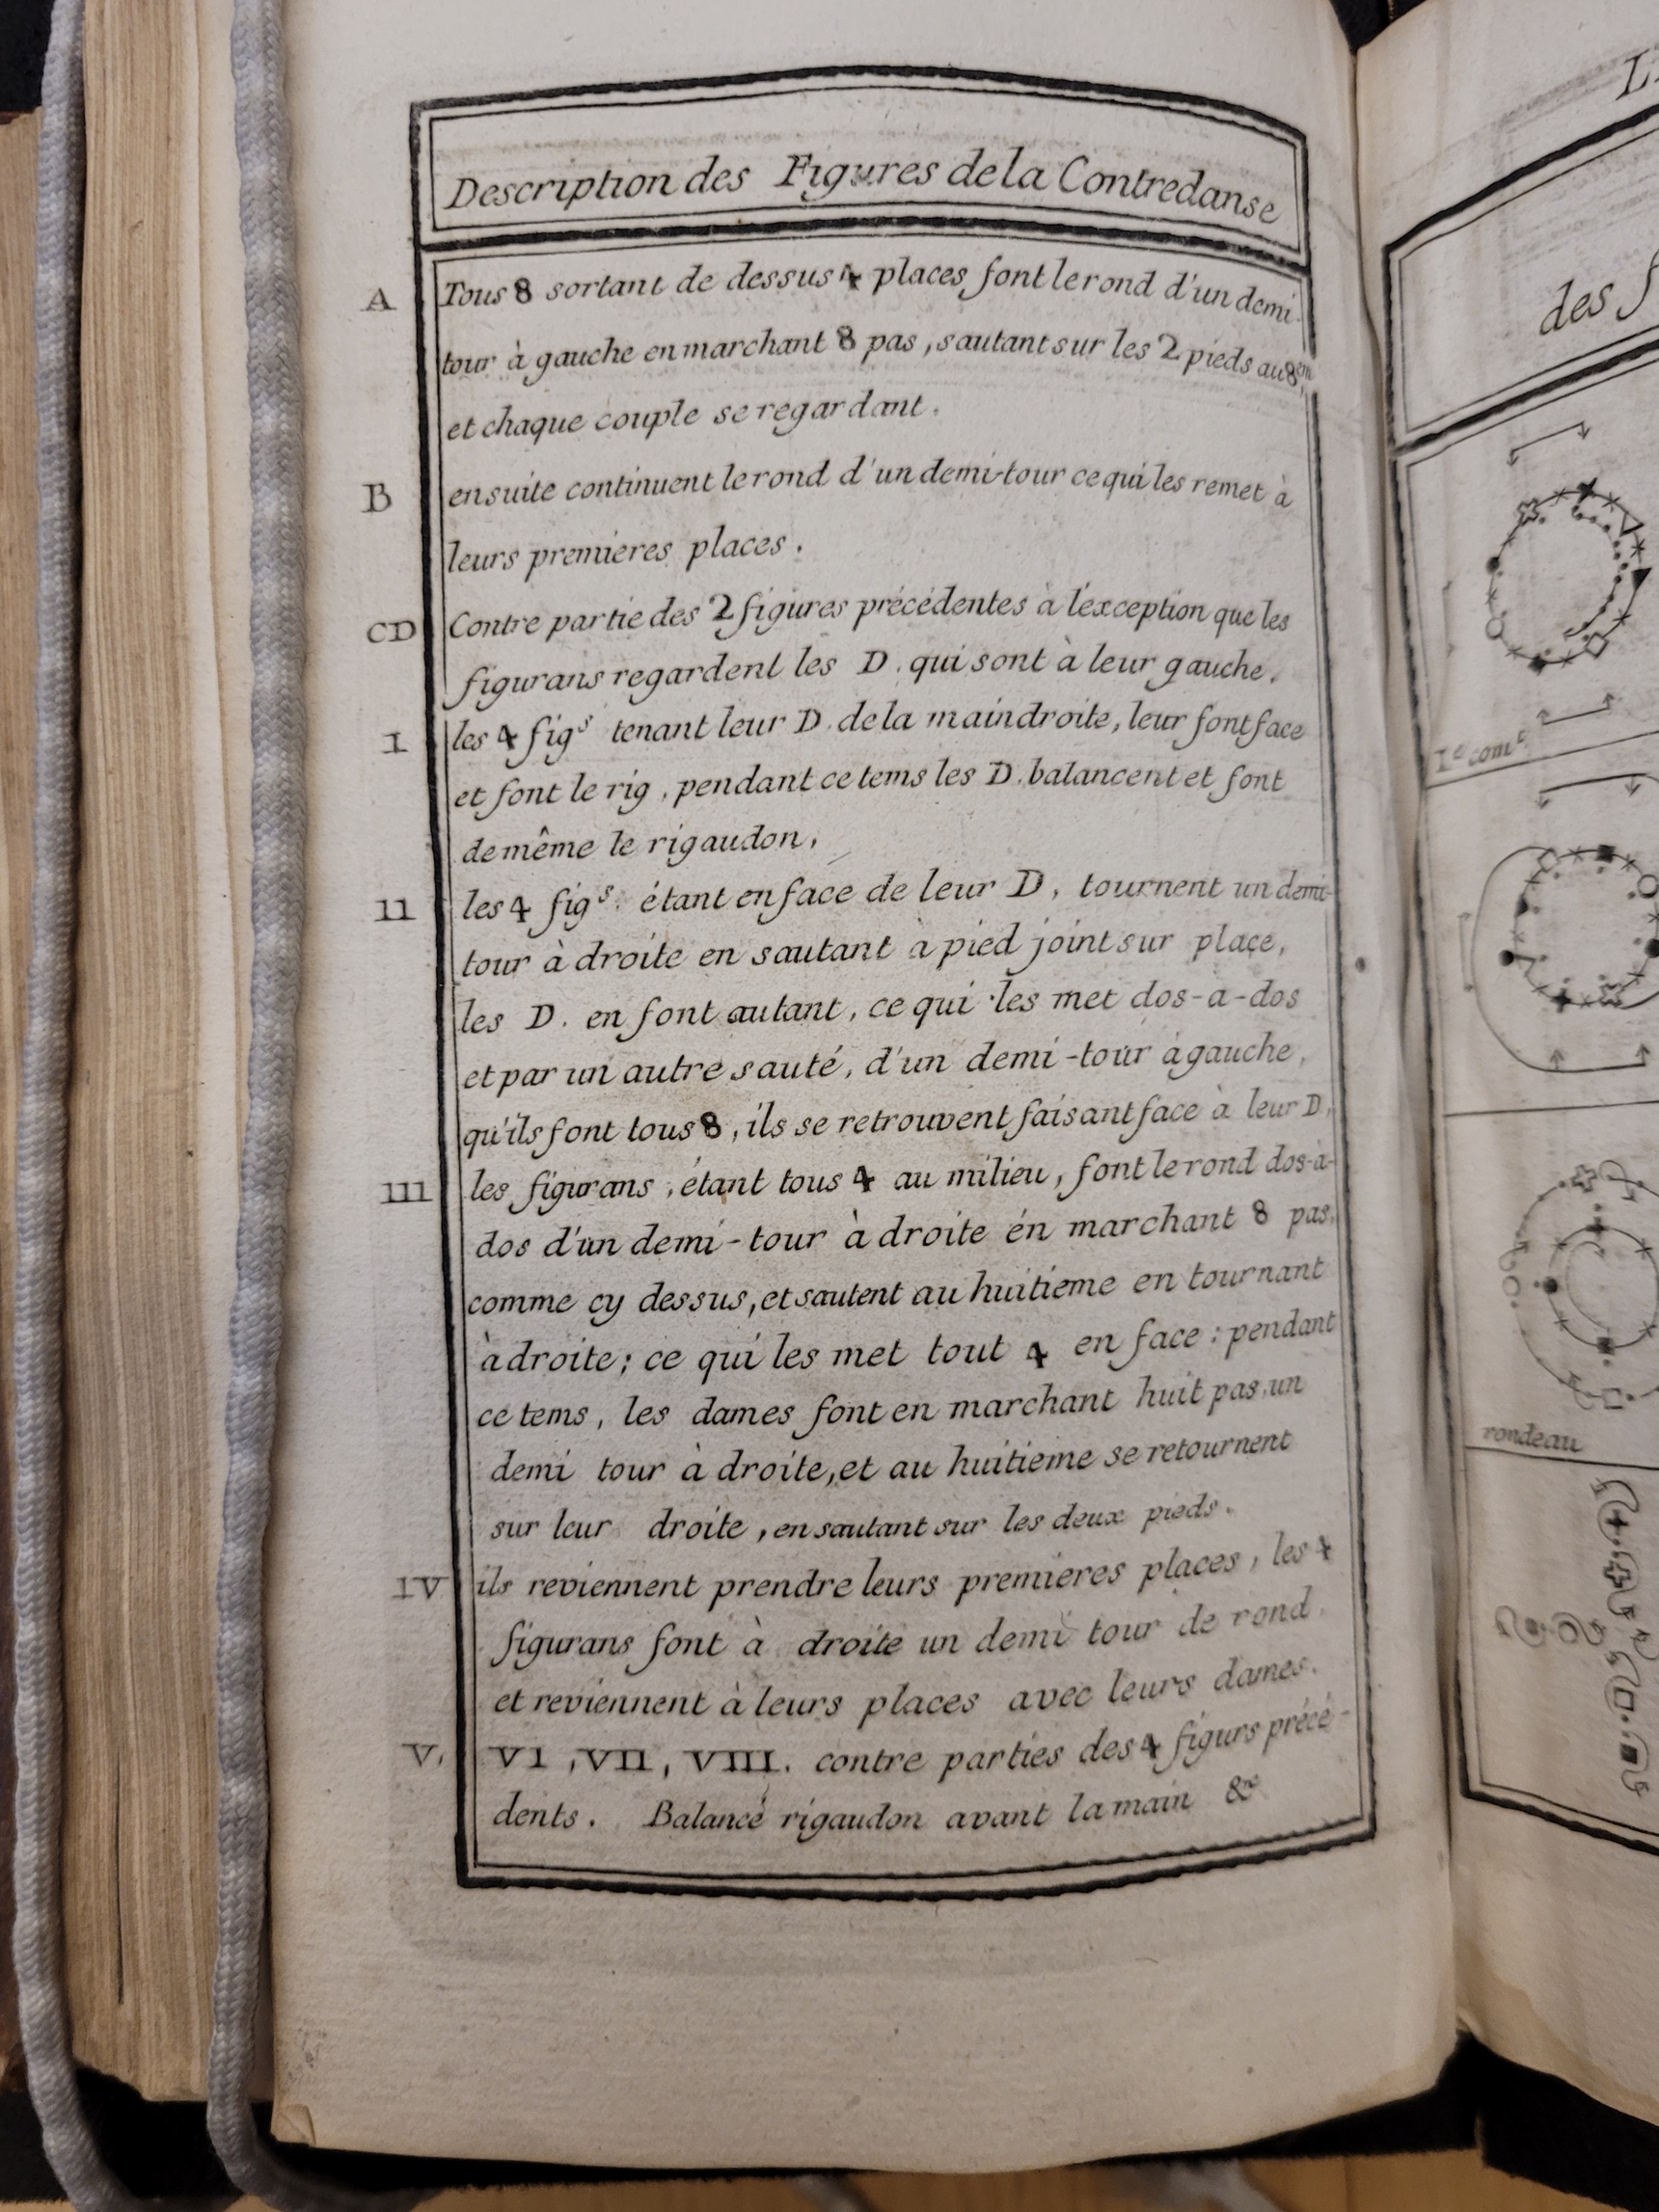 Description des Figures de la Contredanse
A Tous 8 sortant de dessus 4 places font le rond d'un demi-
tour à gauche en marchant 8 pas, sautant sur les 2 pieds au 8.em
et chaque couple se regardant.
B ensuite continuent le rond d'un demi-tour ce qui les remet à
leurs premieres places.
CD Contre partie des 2 figures précédentes à l'exception que les
figurans regardent les D. qui sont à leur gauche.
I les 4 figs tenant leur D. de la main droite, leur font face
et font le rig. pendant ce tems les D. balancent et font
de même le rigaudon.
II les 4 figs. étant en face de leur D, tournent un demi-
tour à droite en sautant à pied joint sur place,
les D. en font autant, ce qui les met dos-a-dos
et par un autre sauté, d'un demi-tour à gauche,
qu'ils font tous 8, ils se retrouvent faisant face à leur D,
III les figurans, étant tous 4 au milieu, font le rond dos-à-
dos d'un demi-tour à droite en marchant 8 pas,
comme cy dessus, et sautent au huitieme en tournant
à droite; ce qui les met tout 4 en face: pendant
ce tems, les dames font en marchant huit pas, un
demi tour à droite, et au huitieme se retournent
sur leur droite, en sautant sur les deux pieds.
IV ils reviennent prendre leurs premieres places, les 4
figurans font à droite un demi tour de rond,
et reviennent à leurs places avec leurs dames.
V, VI, VII, VIII. contre parties des 4 figurs précé-
dents. Balancé rigaudon avant la main &c
des
1e come
rondeau